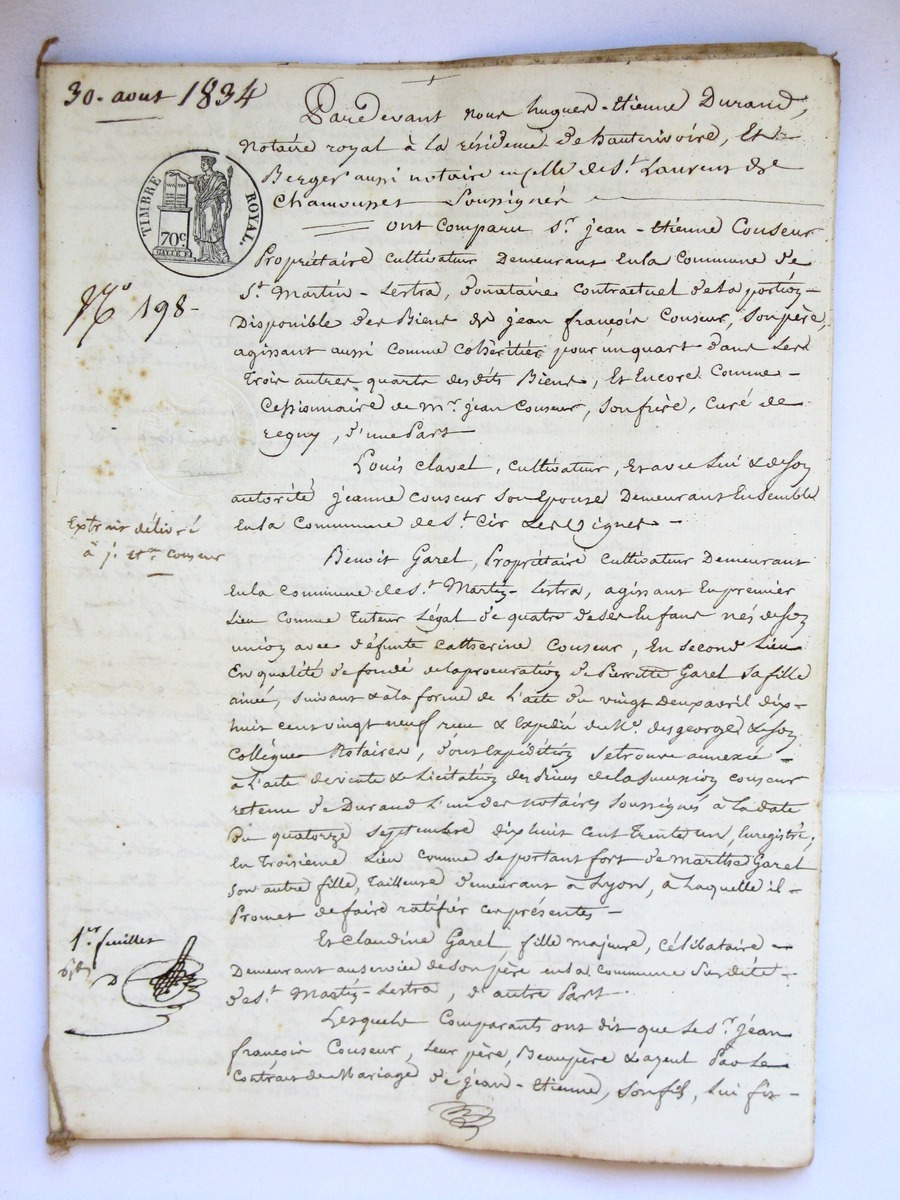 30. aout 1834
Pardevant nous hugues-Etienne Durand,
Notaire royal à la résidence de hauterivoire, Et
Berger aussi notaire en celle de St. Laurent de
Chamousset Soussignés
TIMBRE ROYAL.
70c
ont comparu Sr. jean-Etienne Couseur
Propriétaire cultivateur Demeurant en la Commune de
St. Martin-Lestra, donataire contractuel de la portion
N° 198-
Disponible des Biens de jean françois Couseur, son père,
agissant aussi comme cohéritier pour un quart dans les
Trois autres quarts des dits Biens, Et Encore Comme
Cessionnaire de Mr. jean Couseur, son frère, curé de
regny, d'une Part
Louis Clavel, cultivateur, et avec lui & de son
autorité jeanne couseur son Epouse Demeurant Ensemble
En la Commune de St. Cir Les Vignes -
Extrait délivré
à j. Etne. couseur
Benoit Garel, Propriétaire cultivateur Demeurant
En la commune de St. Martin-Lestra, agissant En premier
Lieu comme Tuteur Légal de quatre de ses Enfans nés de son
union avec défunte Catherine Couseur, En second Lieu
En qualité de fondé de la procuration de Pierrette Garel sa fille
ainée, suivant & à la forme de L'acte du vingt Deux avril dix-
huit cent vingt neuf reçu & Expédié du Me. desgeorges & son
Collègue Notaires, dont expédition se trouve annexée -
à L'acte de vente & Licitation des Biens de la succession couseur
retenu de Durand L'un des notaires soussignés à la date
du quatorze septembre dix huit cent Trente un, Enregistré;
En Troisième Lieu comme se portant fort de marthe Garel
son autre fille, Tailleuse demeurant à Lyon, à Laquelle il -
Promet de faire ratifier ces présentes -
1er. feuillet
D
Et Claudine Garel, fille majeure, célibataire -
Demeurant au service de son père en la commune Susdite -
de St. Martin-Lestra, d'autre Part.
Lesquels Comparants ont dit que le Sr. jean
françois Couseur, leur père, Beaupère & ayeul Par Le
Contrat de Mariage de jean-Etienne, son fils, lui fit -